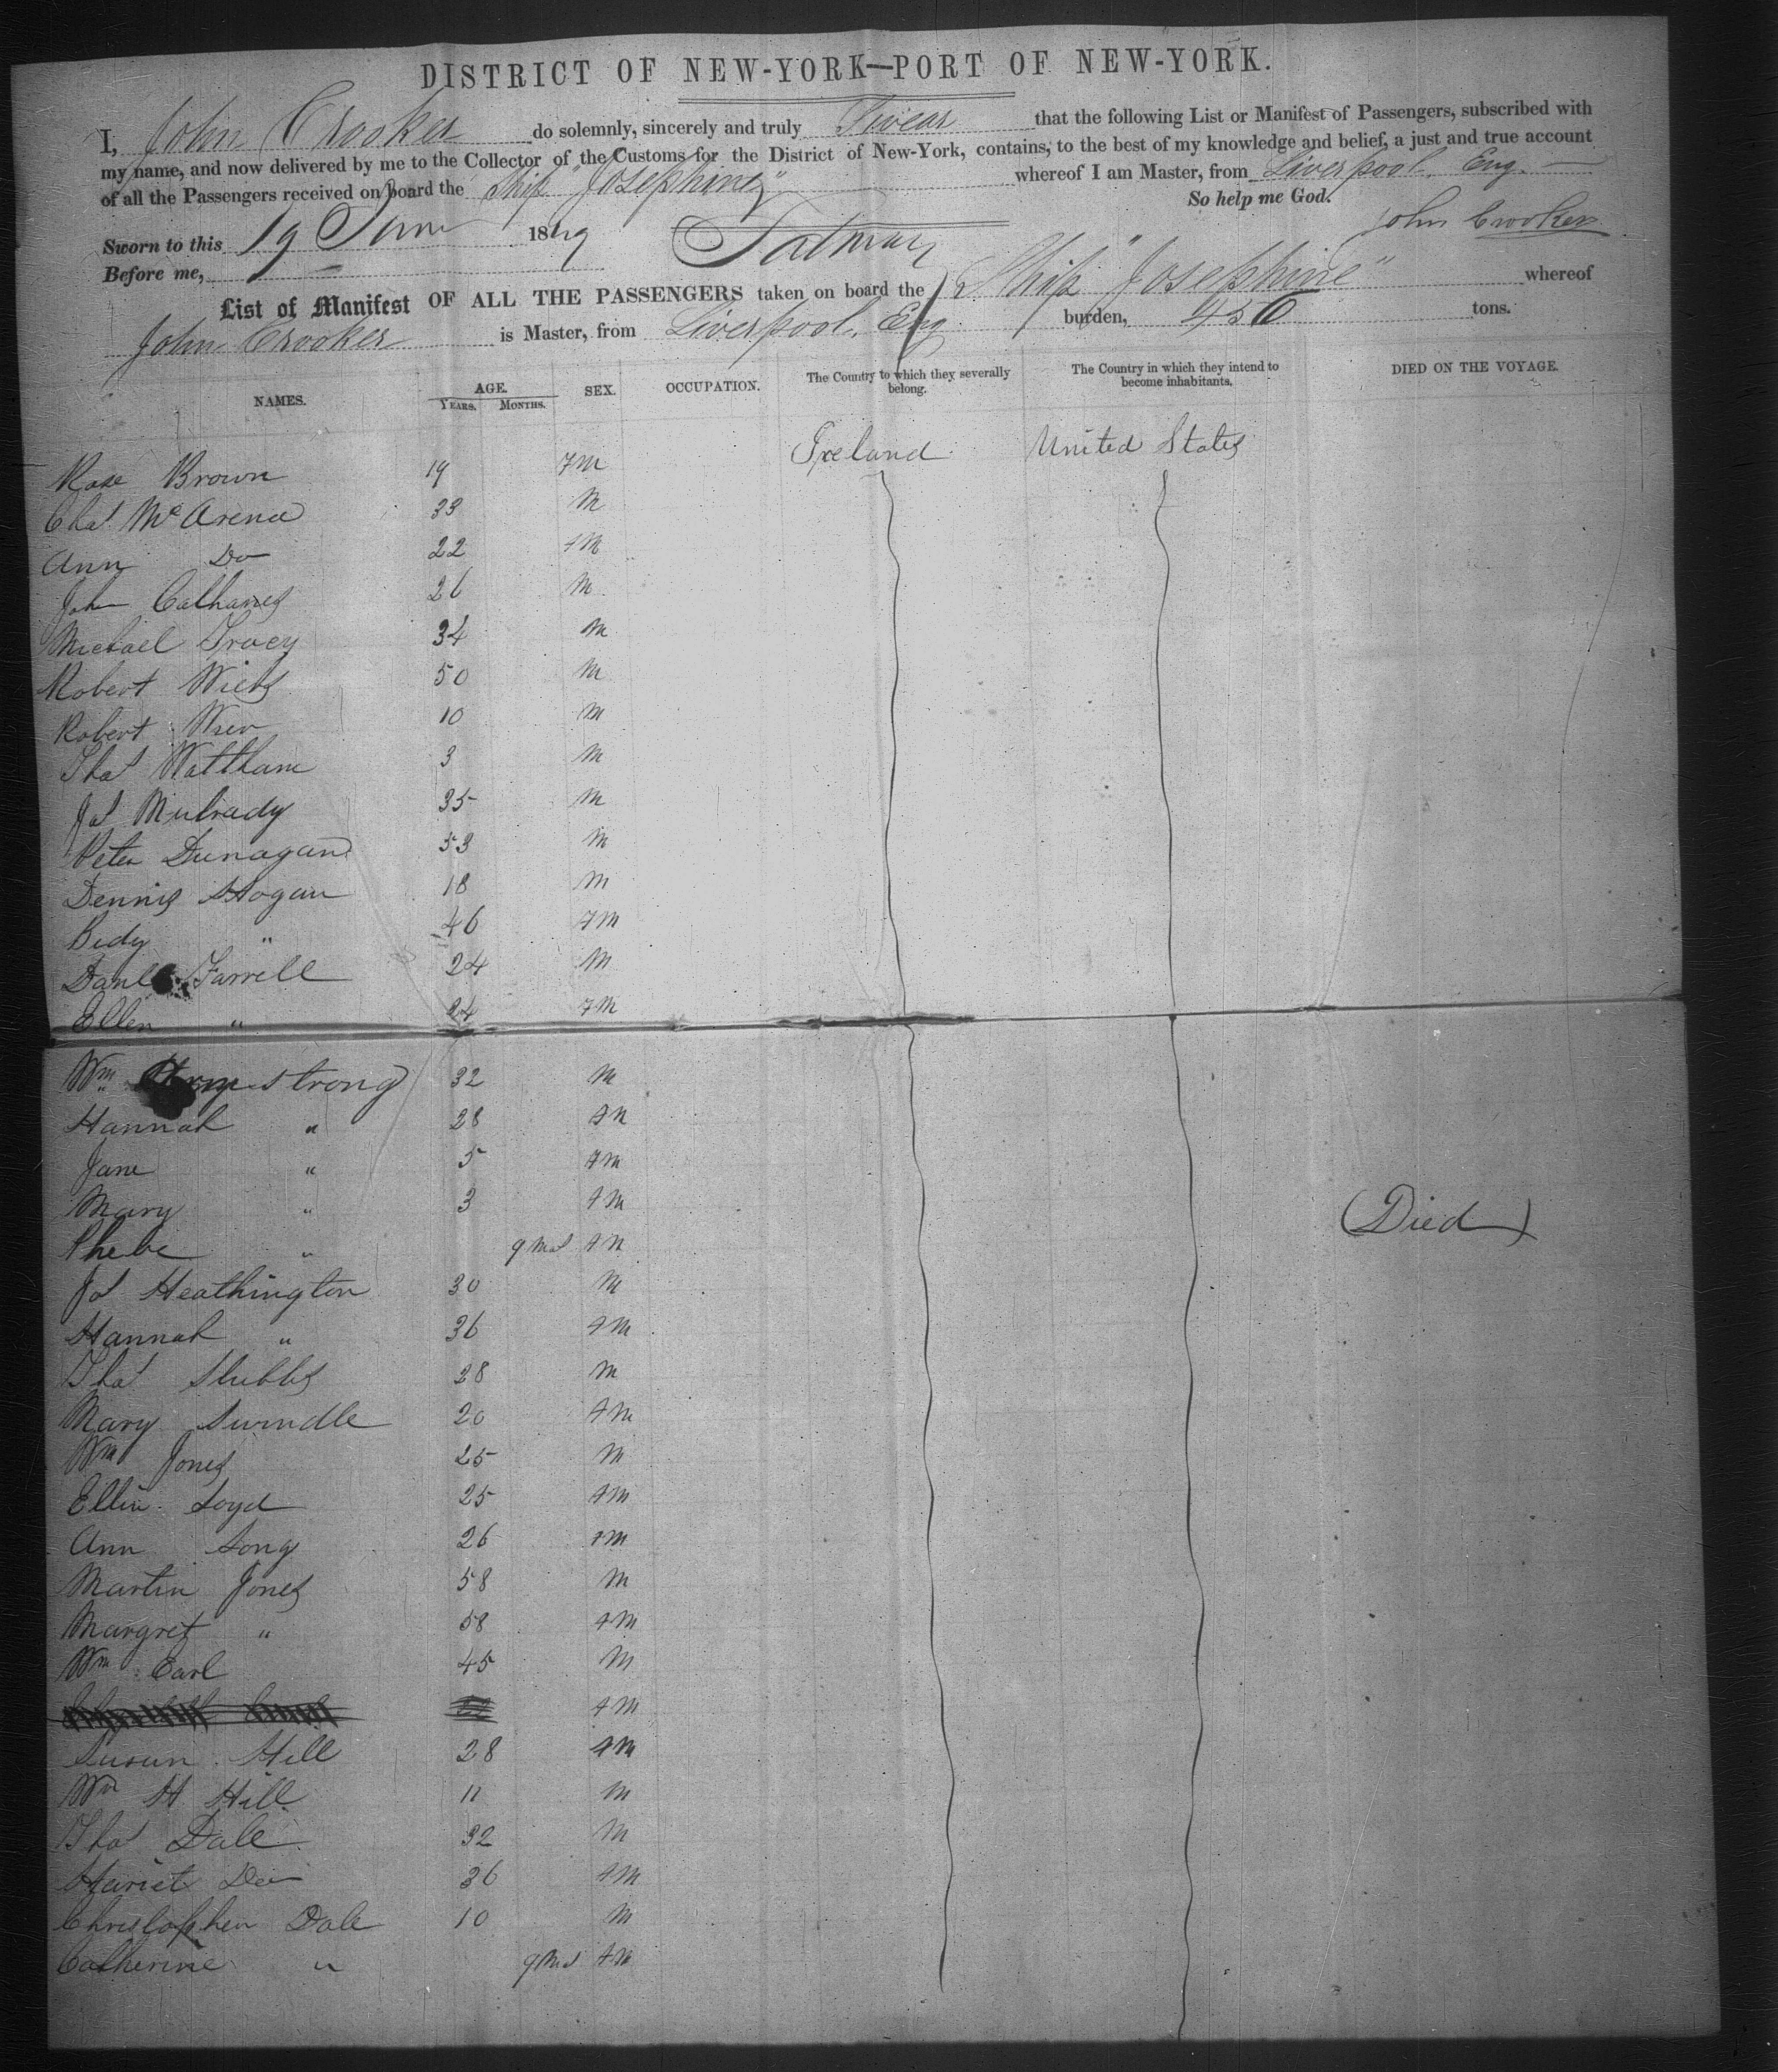 DISTRICT OF NEW-YORK—PORT OF NEW-YORK.
I, John Crooker do solemnly, sincerely and truly Swear that the following List or Manifest of Passengers, subscribed with
my name, and now delivered by me to the Collector of the Customs for the District of New-York, contains, to the best of my knowledge and belief, a just and true account
of all the Passengers received on board the Ship "Josephine" whereof I am Master, from Liverpool, Eng.
So help me God.
Sworn to this 19 1849 John Crooker
Before me,
List of Manifest OF ALL THE PASSENGERS taken on board the Ship "Josephine" whereof
John Crooker is Master, from Liverpool, Eng burden, 456 tons.
NAMES. AGE. YEARS. MONTHS. SEX. OCCUPATION. The Country to which they severally belong. The Country in which they intend to become inhabitants. DIED ON THE VOYAGE.
Rose Brown 19 Fm Ireland United States
Chas McArena 33 M
Ann Do 22 Fm
John Calhanes 26 M
Michael Tracy 34 M
Robert 50 M
Robert 10 M
Thos Wattham 3 M
Js Mulrady 35 M
Peter Dunagan 53 M
Dennis Hogan 18 M
Bidy " 46 Fm
Danl Farrell 24 M
Ellen " 24 Fm
Wm Armstrong 32 M
Hannah " 28 Fm
Jane " 5 Fm
Mary " 3 Fm (Died)
Phebe " 9 Mos Fm
Js Heathington 30 M
Hannah " 36 Fm
Thos Stubbs 28 M
Mary Swindle 20 Fm
Wm Jones 25 M
Ellin Loyd 25 Fm
Ann Long 26 Fm
Martin Jones 58 M
Margret " 58 Fm
Wm Earl 45 M
Fm
Susan Hill 28 Fm
Wm H Hill 11 M
Thos Dale 32 M
Hariet Do 36 Fm
Christopher Dale 10 M
Catherine " 9 Mos Fm